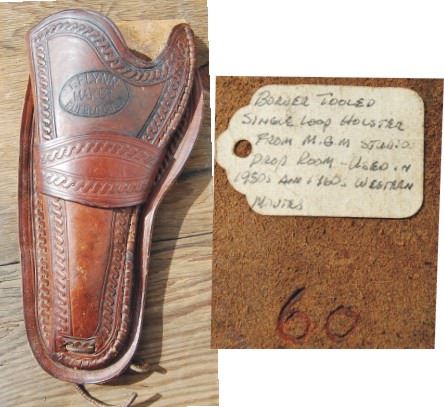 FLYNN
MAKER
BORDER TOOLED
SINGLE LOOP HOLSTER
FROM M.G.M STUDIO
PROP ROOM - USED IN
1950s AND 1960s WESTERN
MOVIES
60